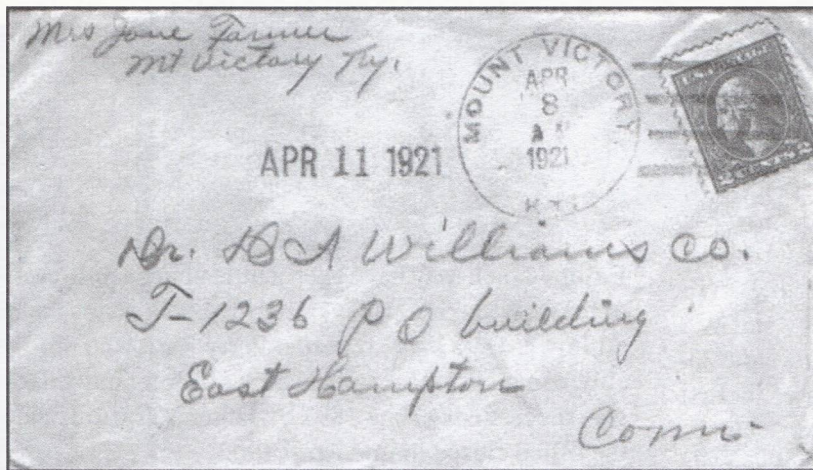 Mrs Jane Farmer
Mt Victory Ky.
MOUNT VICTORY
APR
8
A M
1921
KY.
APR 11 1921
Dr. D A Williams Co.
T-1236 P O building
East Hampton
Conn.